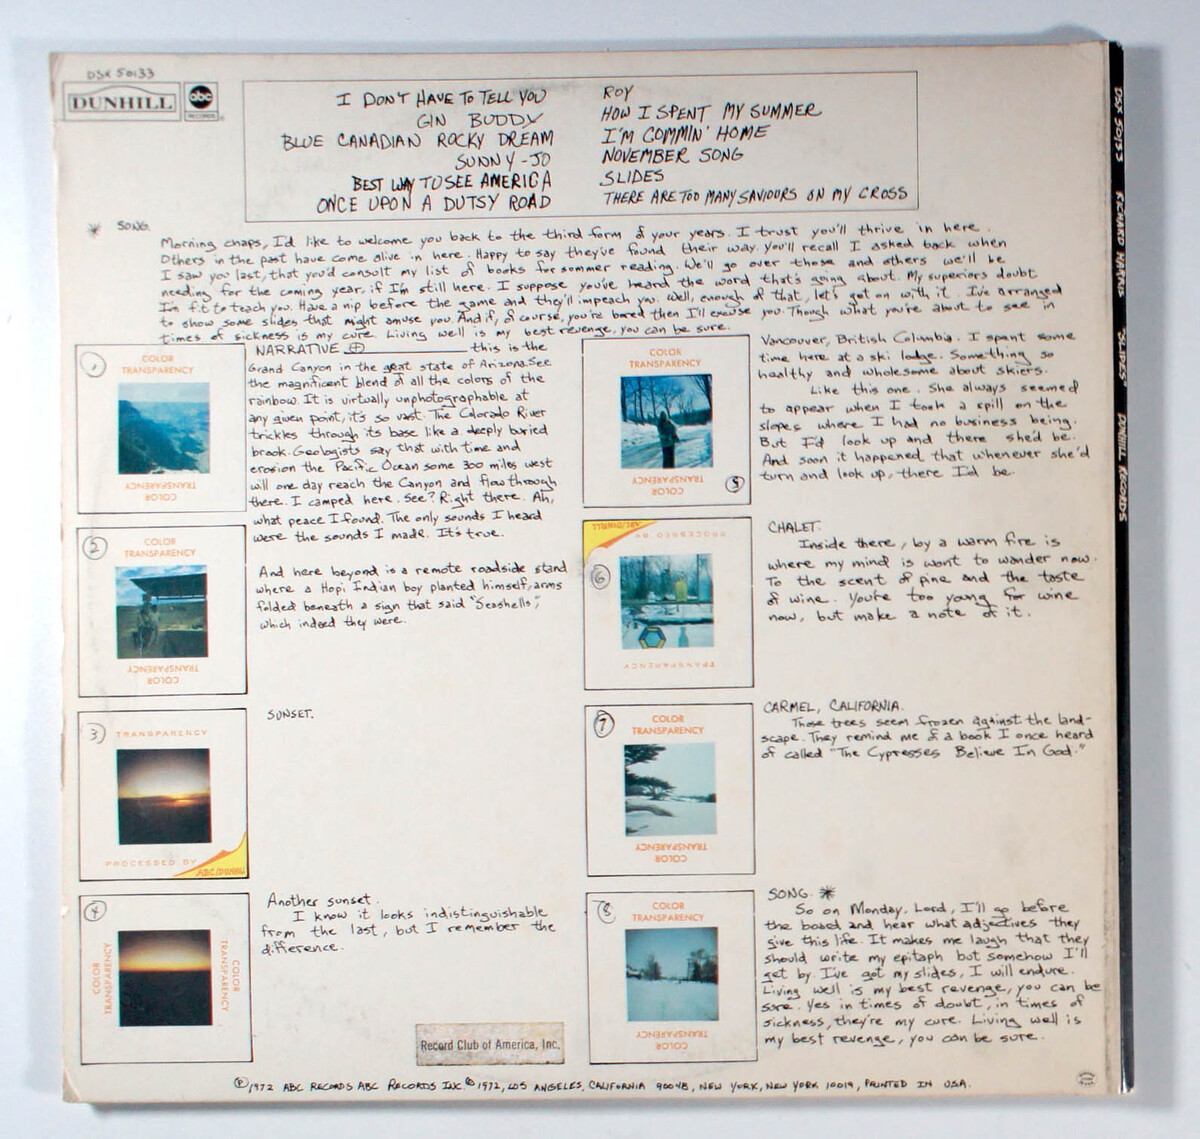 DSX 50133
DUNHILL
abc RECORDS
I DON'T HAVE TO TELL YOU
GIN BUDDY
BLUE CANADIAN ROCKY DREAM
SUNNY-JO
BEST WAY TO SEE AMERICA
ONCE UPON A DUTSY ROAD
ROY
HOW I SPENT MY SUMMER
I'M COMMIN' HOME
NOVEMBER SONG
SLIDES
THERE ARE TOO MANY SAVIOURS ON MY CROSS
* SONG.
Morning chaps, I'd like to welcome you back to the third form of your years. I trust you'll thrive in here.
Others in the past have come alive in here. Happy to say they've found their way. You'll recall I asked back when
I saw you last, that you'd consult my list of books for sommer reading. We'll go over those and others we'll be
needing for the coming year, if I'm still here. I suppose you've heard the word that's going about. My superiors doubt
I'm fit to teach you. Have a nip before the game and they'll impeach you. Well, enough of that, let's get on with it. I've arranged
to show some slides that might amuse you. And if, of course, you're bored then I'll excuse you. Though what you're about to see in
times of sickness is my cure. Living well is my best revenge, you can be sure.
NARRATIVE this is the
Grand Canyon in the great state of Arizona. See
the magnificent blend of all the colors of the
rainbow. It is virtually unphotographable at
any given point, it's so vast. The Colorado River
trickles through its base like a deeply buried
brook. Geologists say that with time and
erosion the Pacific Ocean some 300 miles west
will one day reach the Canyon and flow through
there. I camped here. See? Right there. Ah,
what peace I found. The only sounds I heard
were the sounds I made. It's true.
And here beyond is a remote roadside stand
where a Hopi Indian boy planted himself, arms
folded beneath a sign that said "Seashells",
which indeed they were.
SUNSET.
Another sunset.
I know it looks indistinguishable
from the last, but I remember the
difference.
1
COLOR
TRANSPARENCY
TRANSPARENCY
COLOR
2
COLOR
TRANSPARENCY
TRANSPARENCY
COLOR
3
TRANSPARENCY
PROCESSED BY
ABC/DUNHILL
4
COLOR
TRANSPARENCY
COLOR
TRANSPARENCY
COLOR
TRANSPARENCY
TRANSPARENCY
COLOR
5
ABC/DUNHILL
PROCESSED BY
6
TRANSPARENCY
7
COLOR
TRANSPARENCY
TRANSPARENCY
COLOR
8
COLOR
TRANSPARENCY
TRANSPARENCY
COLOR
Vancouver, British Columbia. I spent some
time here at a ski lodge. Something so
healthy and wholesome about skiers.
Like this one. She always seemed
to appear when I took a spill on the
slopes where I had no business being.
But I'd look up and there she'd be.
And soon it happened that whenever she'd
turn and look up, there I'd be.
CHALET.
Inside there, by a warm fire is
where my mind is wont to wander now.
To the scent of pine and the taste
of wine. You're too young for wine
now, but make a note of it.
CARMEL, CALIFORNIA.
Those trees seem frozen against the land-
scape. They remind me of a book I once heard
of called "The Cypresses Believe In God."
SONG. *
So on Monday, Lord, I'll go before
the board and hear what adjectives they
give this life. It makes me laugh that they
should write my epitaph but somehow I'll
get by. I've got my slides, I will endure.
Living well is my best revenge, you can be
sure. Yes in times of doubt, in times of
sickness, they're my cure. Living well is
my best revenge, you can be sure.
Record Club of America, Inc.
℗1972 ABC RECORDS ABC RECORDS INC. ©1972, LOS ANGELES, CALIFORNIA 90048, NEW YORK, NEW YORK 10019, PRINTED IN USA.
DSX 50133 RICHARD HARRIS "SLIDES" DUNHILL RECORDS